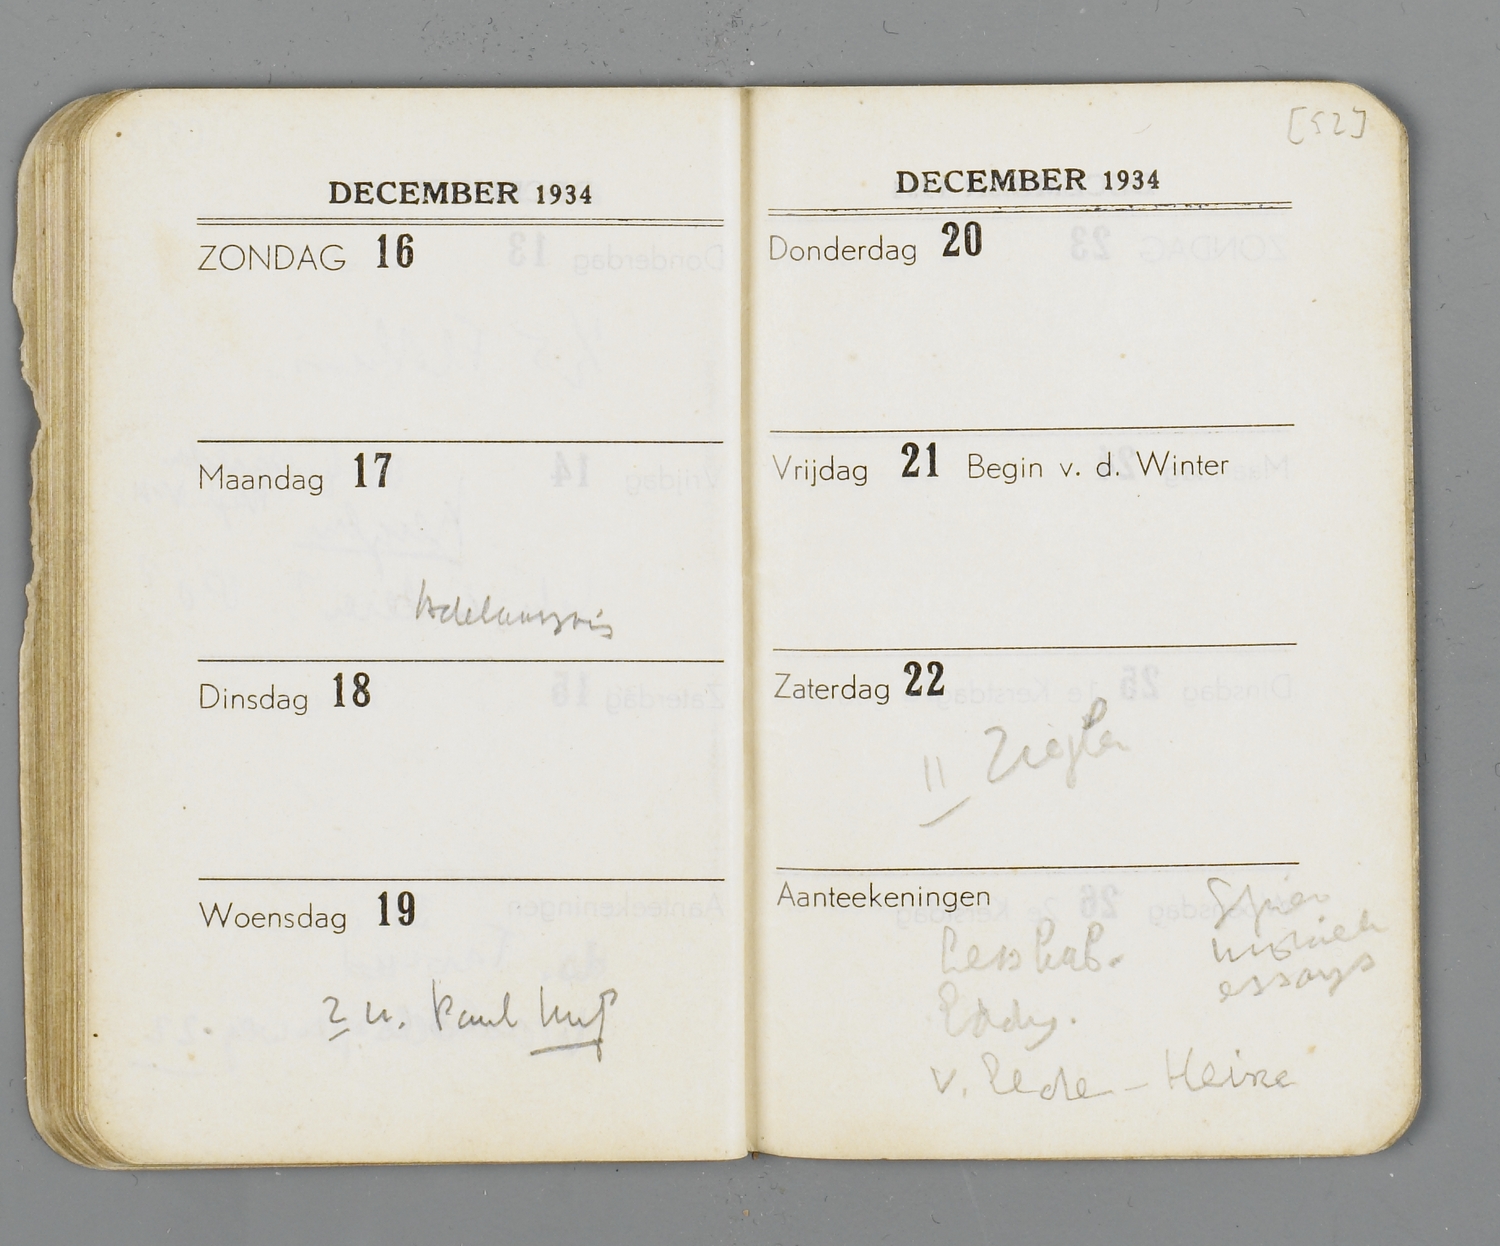 DECEMBER 1934
ZONDAG 16
Maandag 17
Dinsdag 18
Woensdag 19
2 u. Paul Huf
[52]
DECEMBER 1934
Donderdag 20
Vrijdag 21 Begin v. d. Winter
Zaterdag 22
11 Ziegler
Aanteekeningen
essays
Eddy.
v. - Heine